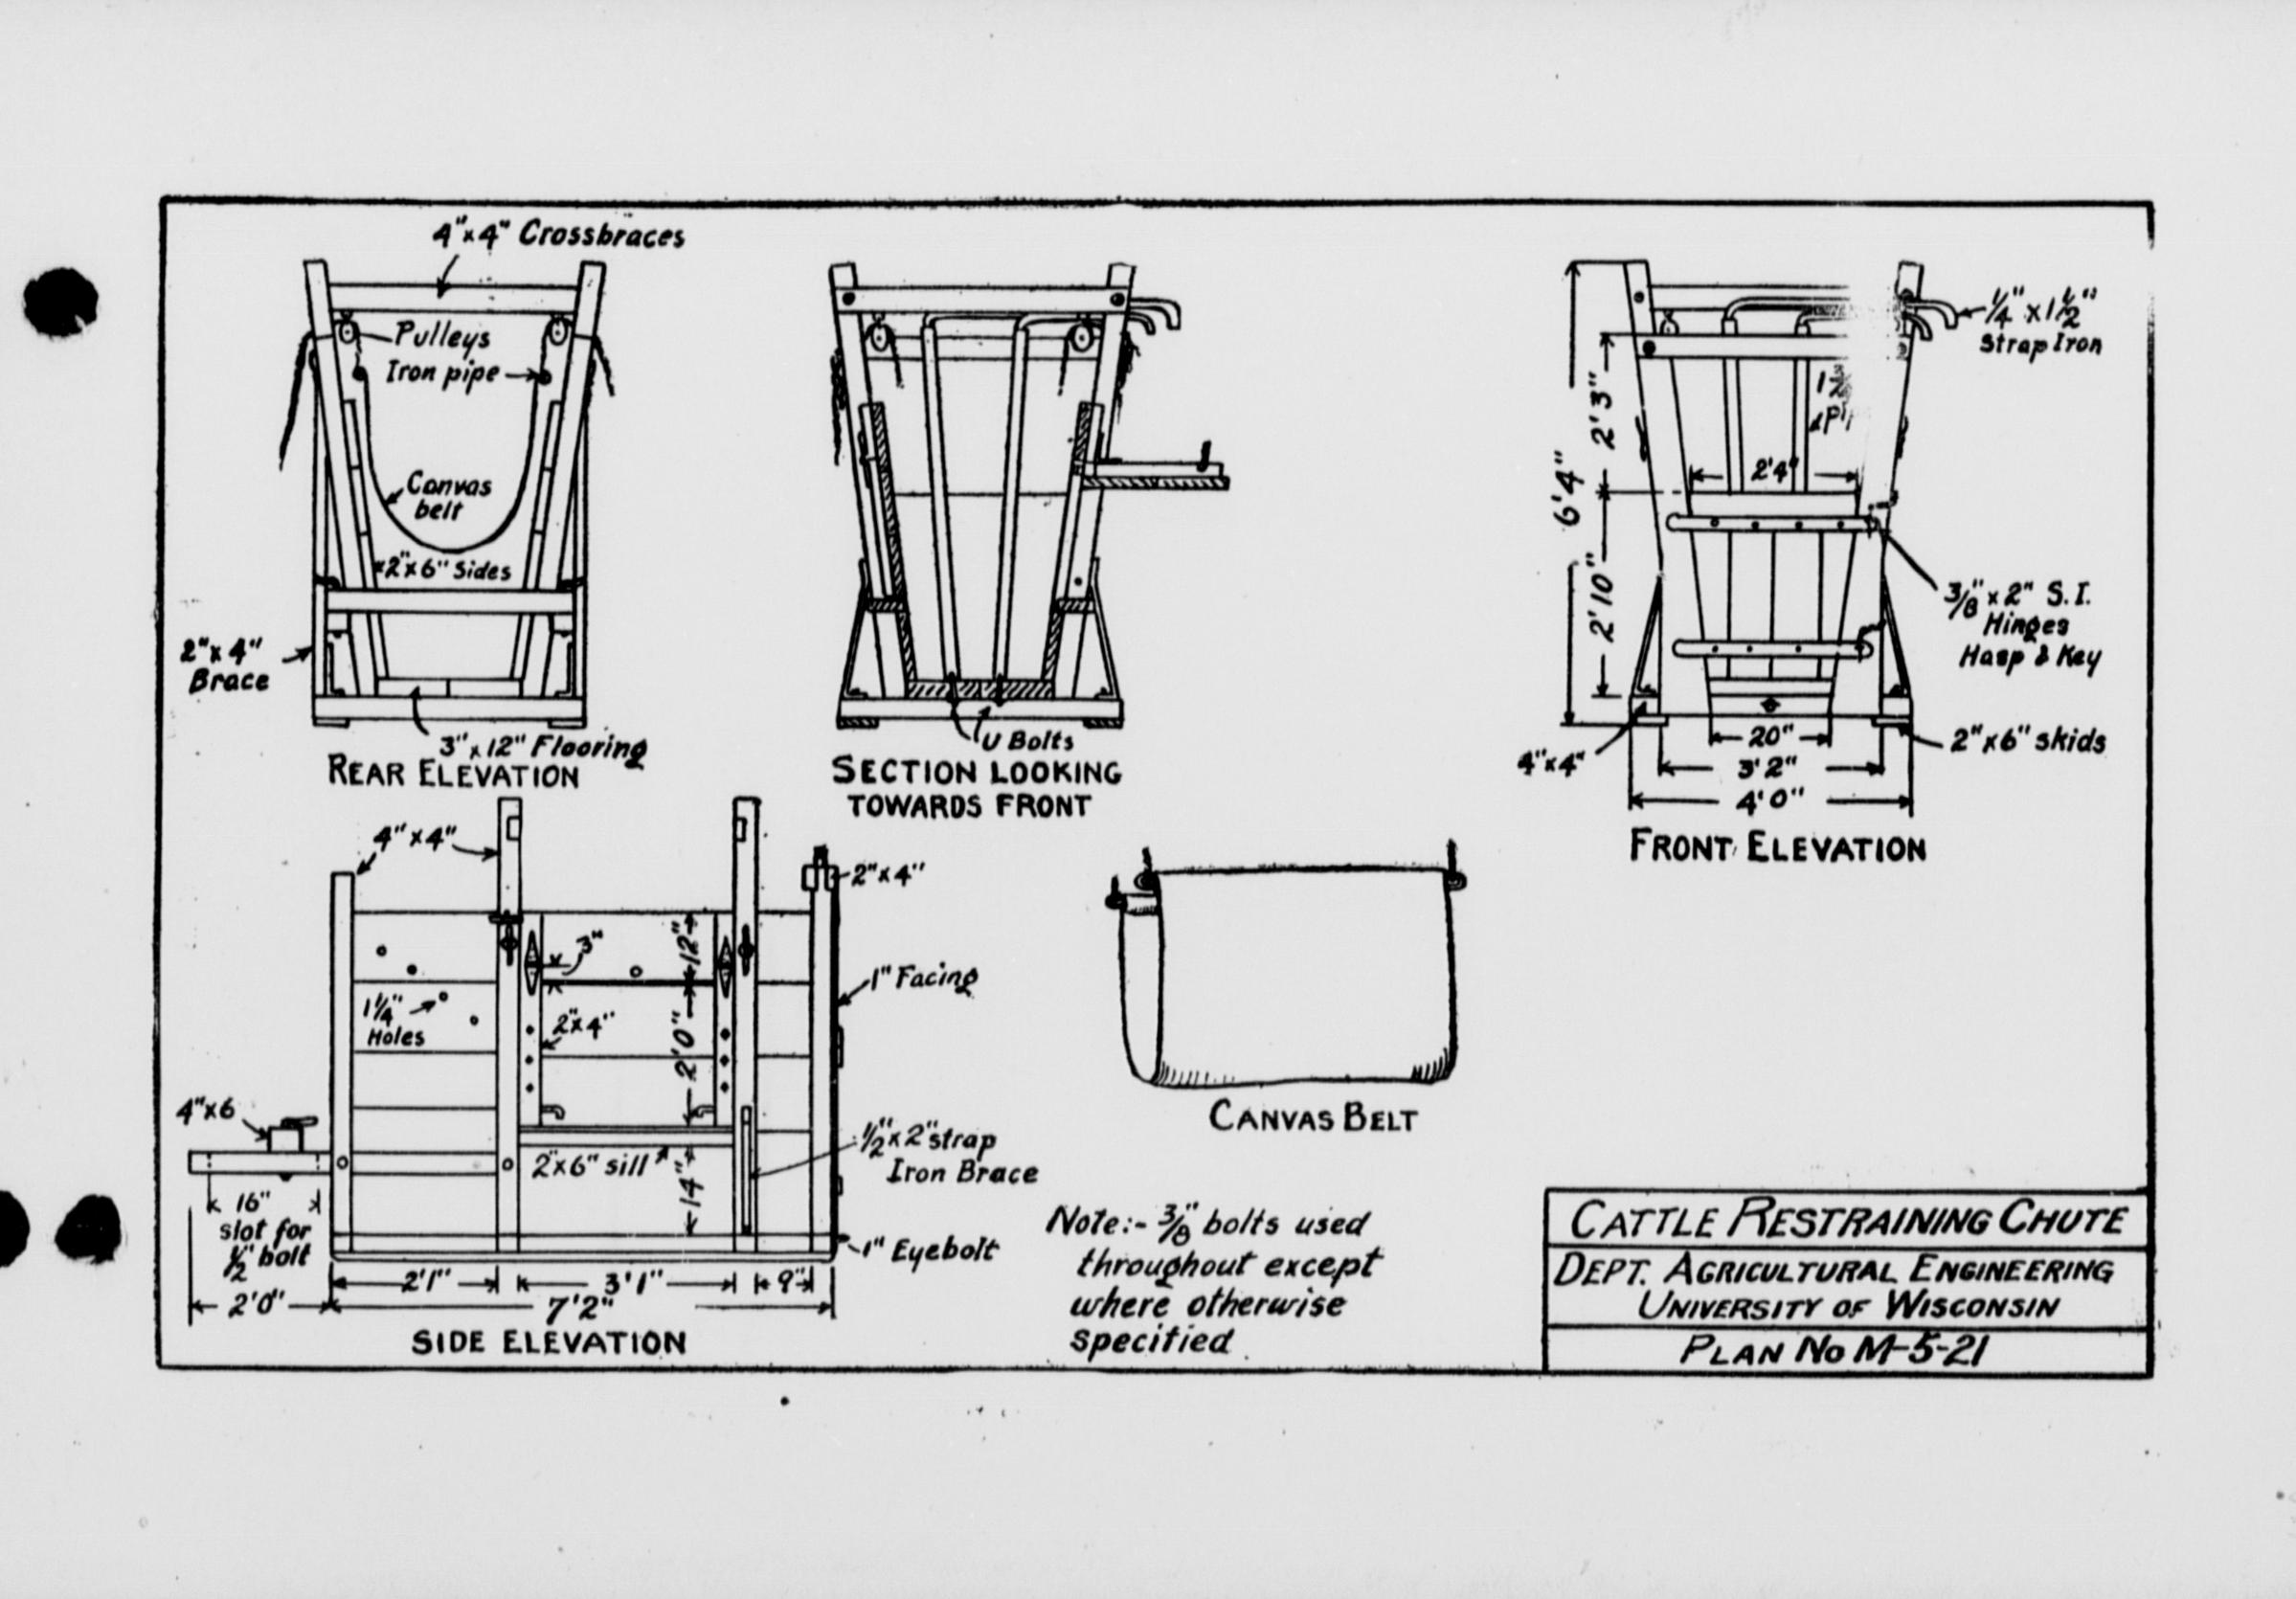 4"x4" Crossbraces
Pulleys
Iron pipe
Canvas
belt
2"x6" Sides
2"x4"
Brace
3"x12" Flooring
REAR ELEVATION
U Bolts
SECTION LOOKING
TOWARDS FRONT
1/4" x 1 1/2"
Strap Iron
2'3"
6'4"
2'4"
2'10"
3/8" x 2" S.I.
Hinges
Hasp & Key
4"x4"
20"
2"x6" skids
3'2"
4'0"
FRONT ELEVATION
4"x4"
2"x4"
3"
12"
1" Facing
1 1/4"
Holes
2"x4"
2'0"
4"x6
1/2"x2" strap
Iron Brace
2"x6" sill
14"
16"
slot for
1/2" bolt
1" Eyebolt
2'1"
3'1"
9"
2'0"
7'2"
SIDE ELEVATION
CANVAS BELT
Note:- 3/8" bolts used
throughout except
where otherwise
specified.
CATTLE RESTRAINING CHUTE
DEPT. AGRICULTURAL ENGINEERING
UNIVERSITY OF WISCONSIN
PLAN No M-5-21